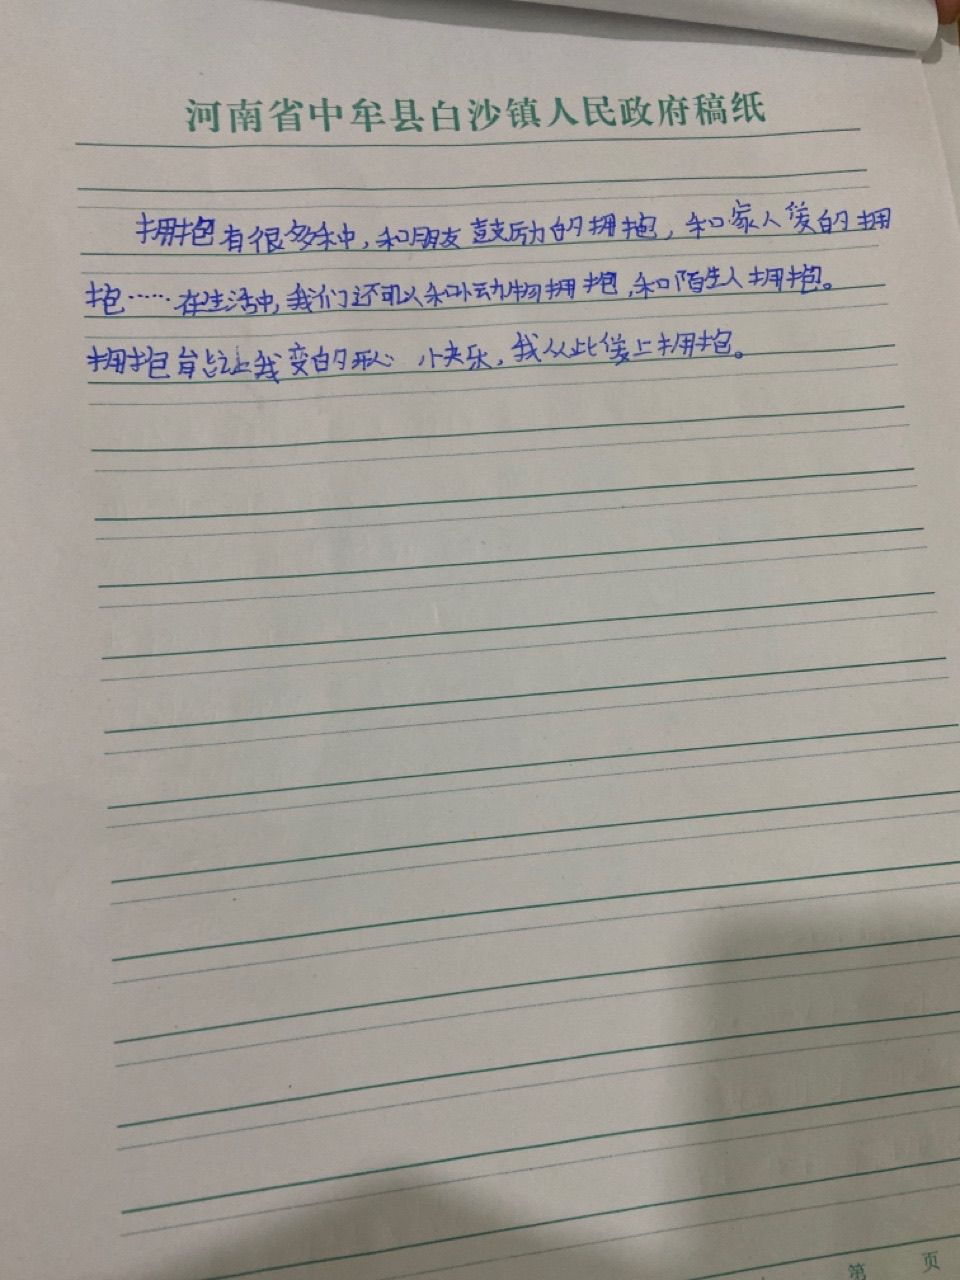 河南省中牟县白沙镇人民政府稿纸
拥抱有很多种,和朋友鼓励的拥抱,和家人爱的拥
抱……在生活中,我们还可以和动物拥抱,和陌生人拥抱。
拥抱能让我变的开心 快乐,我从此爱上拥抱。
第 页